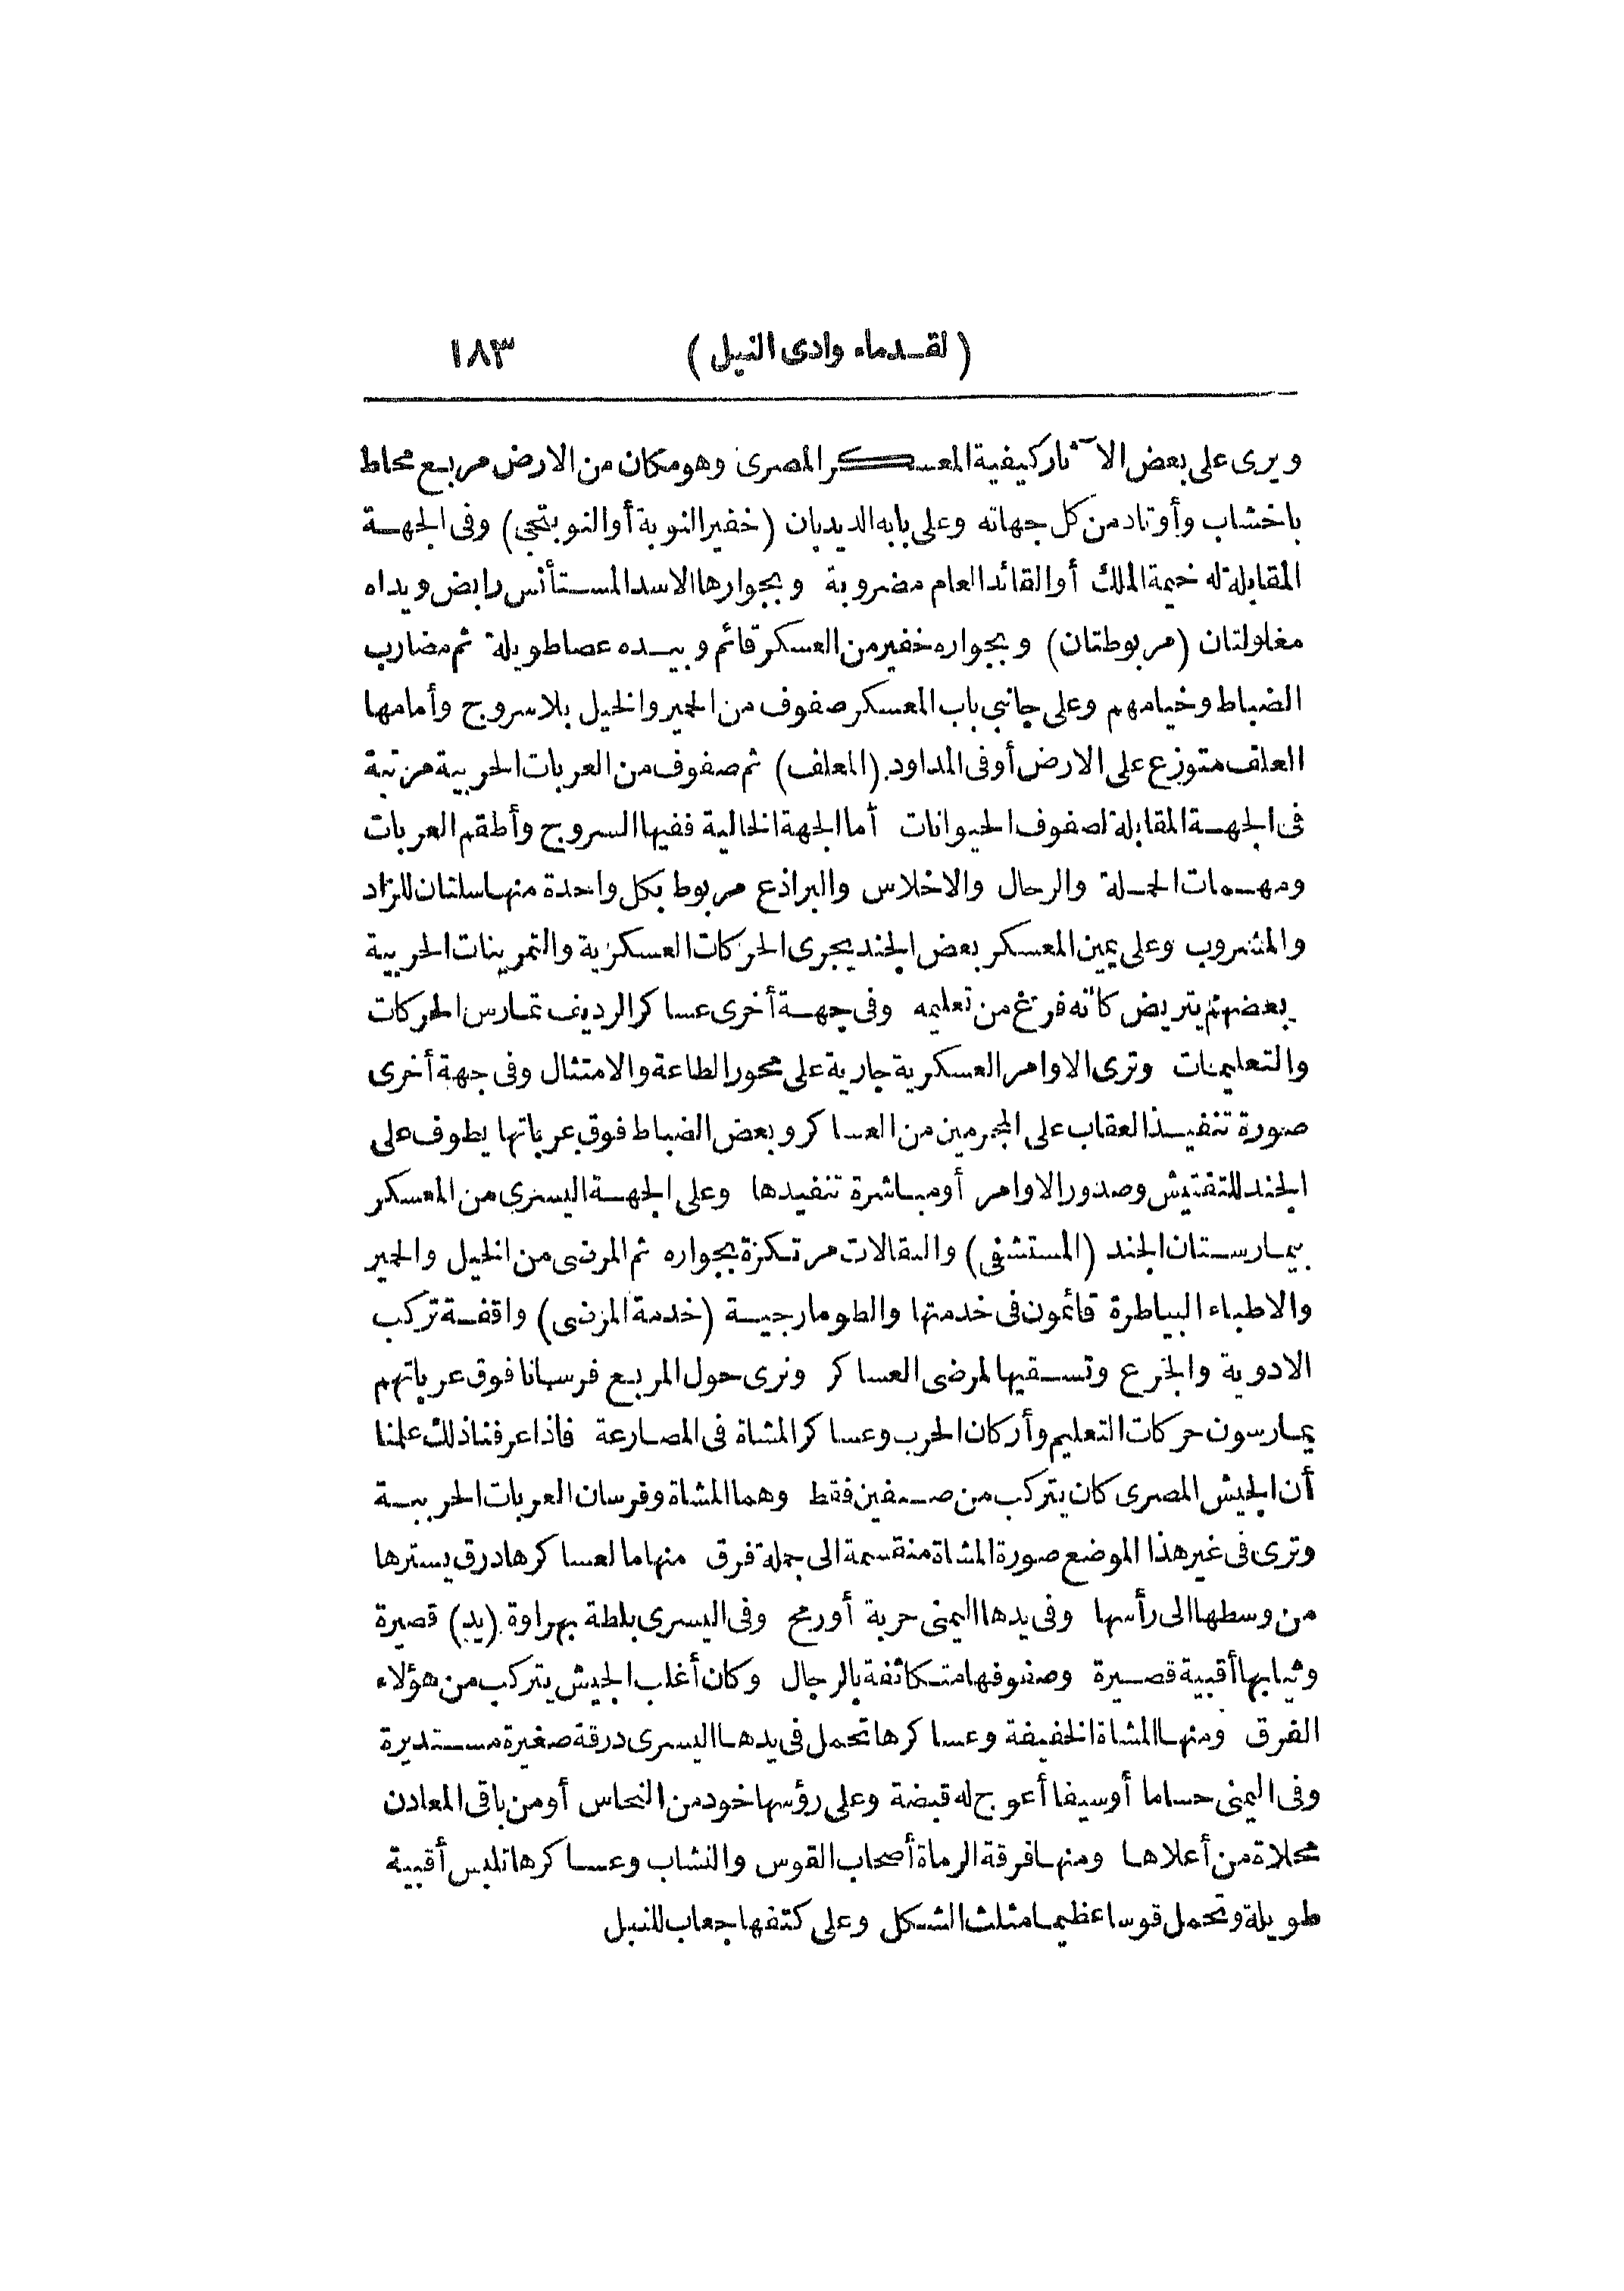 (لقدماء وادى النيل) ١٨٣
ويرى على بعض الآثار كيفية المعسكر المصرى وهو مكان من الارض مربع محاط
باخشاب وأوتاد من كل جهاته وعلى بابه الديدبان (خفير النوبة أو النوبتجى) وفى الجهة
المقابلة له خيمة الملك أو القائد العام مضروبة وبجوارها الاسد المستأنس رابض ويداه
مغلولتان (مربوطتان) وبجواره خفير من العسكر قائم وبيده عصا طويلة ثم مضارب
الضباط وخيامهم وعلى جانبى باب المعسكر صفوف من الحمير والخيل بلا سروج وأمامها
العلف متوزع على الارض أو فى المداود (المعلف) ثم صفوف من العربات الحربية مرتبة
فى الجهة المقابلة لصفوف الحيوانات أما الجهة الخالية ففيها السروج وأطقم العربات
ومهمات الحملة والرحال والاخلاس والبراذع مربوط بكل واحدة منها سلتان للزاد
والمشروب وعلى يمين المعسكر بعض الجند يجرى الحركات العسكرية والتمرينات الحربية
بعضهم يتريض كأنه فرغ من تعليمه وفى جهة أخرى عساكر الرديف تمارس الحركات
والتعليمات وترى الاوامر العسكرية جارية على محور الطاعة والامتثال وفى جهة أخرى
صورة تنفيذ العقاب على المجرمين من العساكر وبعض الضباط فوق عرباتها يطوف على
الجند للتفتيش وصدور الاوامر أو مباشرة تنفيدها وعلى الجهة اليسرى من المعسكر
بيمارستان الجند (المستشفى) والنقالات مرتكزة بجواره ثم المرضى من الخيل والحمير
والاطباء البياطرة قائمون فى خدمتها والطومارجية (خدمة المرضى) واقفة تركب
الادوية والجرع وتسقيها لمرضى العساكر ونرى حول المربع فرسانا فوق عرباتهم
يمارسون حركات التعليم وأركان الحرب وعساكر المشاة فى المصارعة فاذا عرفنا ذلك علمنا
أن الجيش المصرى كان يتركب من صنفين فقط وهما المشاة وفرسان العربات الحربية
وترى فى غير هذا الموضع صورة المشاة منقسمة الى جملة فرق منها ما لعساكرها درق يسترها
من وسطها الى رأسها وفى يدها اليمنى حربة أو رمح وفى اليسرى بلطة بهراوة (يد) قصيرة
وثيابها أقبية قصيرة وصفوفها متكاثفة بالرجال وكان أغلب الجيش يتركب من هؤلاء
الفرق ومنها المشاة الخفيفة وعساكرها تحمل فى يدها اليسرى درقة صغيرة مستديرة
وفى اليمنى حساما أو سيفا أعوج له قبضة وعلى رؤسها خود من النحاس أو من باقى المعادن
محلاة من أعلاها ومنها فرقة الرماة أصحاب القوس والنشاب وعساكرها تلبس أقبية
طويلة وتحمل قوسا عظيما مثلث الشكل وعلى كتفها جعاب للنبل